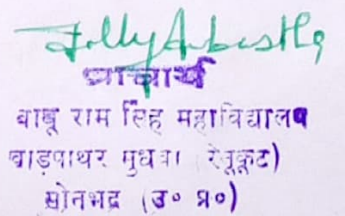 प्राचार्य
बाबू राम सिंह महाविद्यालय
खाड़पाथर मुधवा रेनूकूट)
सोनभद्र (उ० प्र०)